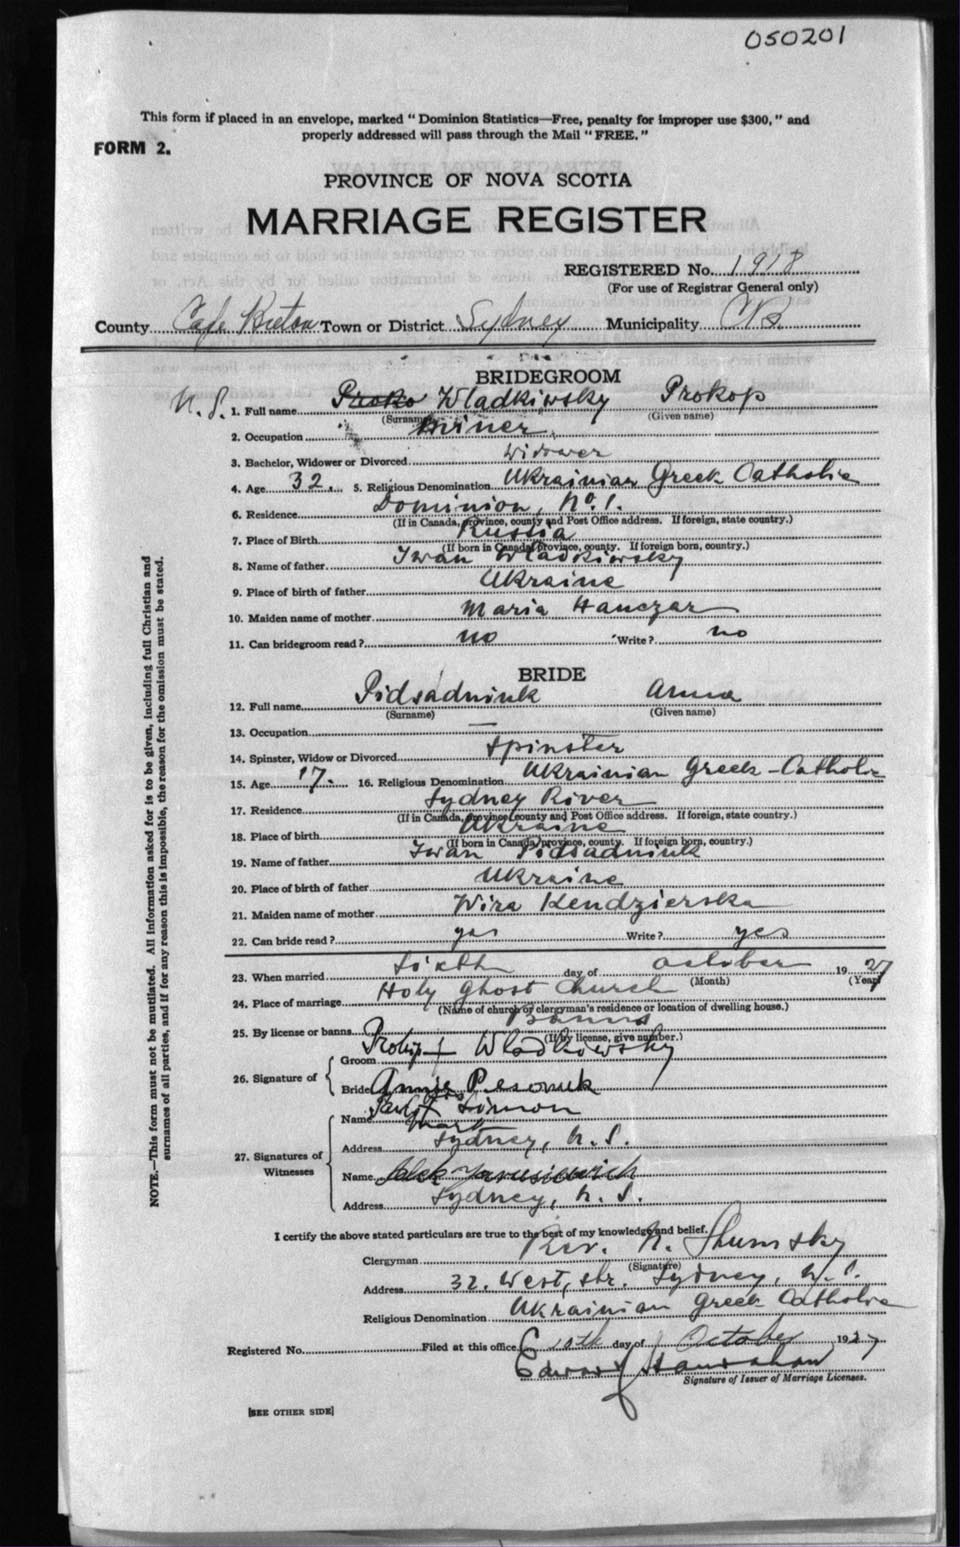 050201
This form if placed in an envelope, marked "Dominion Statistics—Free, penalty for improper use $300," and
properly addressed will pass through the Mail "FREE."
FORM 2.
PROVINCE OF NOVA SCOTIA
MARRIAGE REGISTER
REGISTERED No. 1918
(For use of Registrar General only)
County Cape Breton Town or District Sydney Municipality C.B.
BRIDEGROOM
N.S. 1. Full name Proko Wladkiwsky Prokop
(Surname) (Given name)
2. Occupation Miner
3. Bachelor, Widower or Divorced Widower
4. Age 32. 5. Religious Denomination Ukrainian Greek Catholic
6. Residence Dominion, No. 1.
(If in Canada, province, county and Post Office address. If foreign, state country.)
7. Place of Birth Russia
(If born in Canada, province, county. If foreign born, country.)
8. Name of father Iwan Wladkiowsky
9. Place of birth of father Ukraine
10. Maiden name of mother Maria Hanczar
11. Can bridegroom read? no Write? no
BRIDE
12. Full name Pidsadniuk Anna
(Surname) (Given name)
13. Occupation —
14. Spinster, Widow or Divorced Spinster
15. Age 17. 16. Religious Denomination Ukrainian Greek-Catholic
17. Residence Sydney River
(If in Canada, province, county and Post Office address. If foreign, state country.)
18. Place of birth Ukraine
(If born in Canada, province, county. If foreign born, country.)
19. Name of father Iwan Pidsadniuk
20. Place of birth of father Ukraine
21. Maiden name of mother Wira Kendzierska
22. Can bride read? yes Write? yes
23. When married Sixth day of October 1927
(Month) (Year)
24. Place of marriage Holy Ghost Church
(Name of church or clergyman's residence or location of dwelling house.)
25. By license or banns Banns
(If by license, give number.)
26. Signature of
Groom Prokip + Wladkowsky
Bride Annie Pesonuk
27. Signatures of Witnesses
Name Simon
mark
Address Sydney, N.S.
Name Alek Yarusiewich
Address Sydney, N.S.
I certify the above stated particulars are true to the best of my knowledge and belief.
Clergyman Rev. N. Shumsky
(Signature)
Address 32. West, str. Sydney, N.S.
Religious Denomination Ukrainian Greek Catholic
Registered No. Filed at this office 10th day of October 1927
Edward Hanrahan
Signature of Issuer of Marriage Licenses.
[SEE OTHER SIDE]
NOTE.—This form must not be mutilated. All information asked for is to be given, including full Christian and
surnames of all parties, and if for any reason this is impossible, the reason for the omission must be stated.